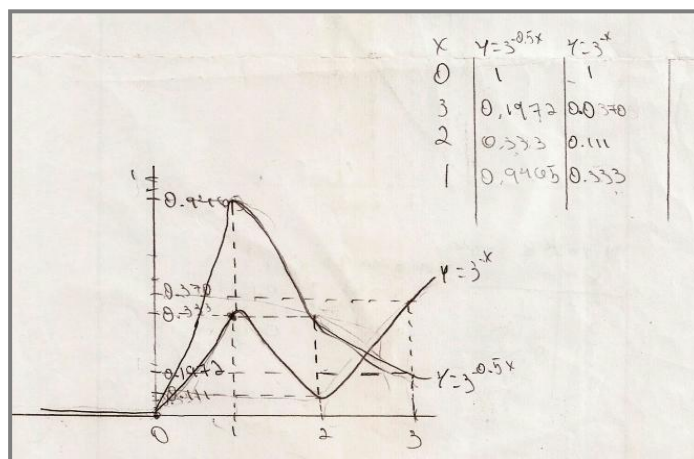 X Y=3^-0.5x Y=3^-x
0 1 1
3 0.1972 0.0370
2 0.333 0.111
1 0.9465 0.333
1
0.9465
0.370
0.333
0.1972
0.111
Y=3^-x
Y=3^-0.5x
0 1 2 3